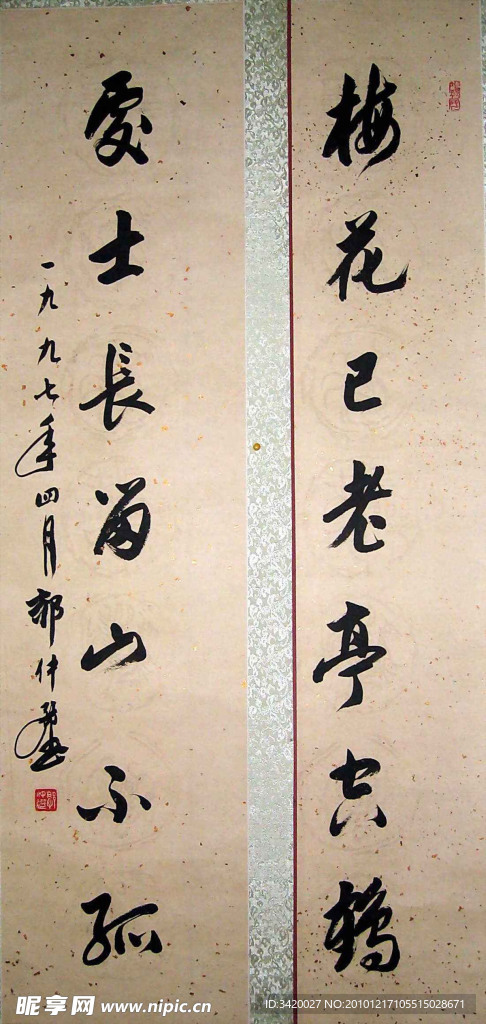 梅花已老亭空鶴
處士長留山不孤
一九九七年四月郭仲選
昵享网 www.nipic.cn
ID:3420027 NO:20101217105515028671